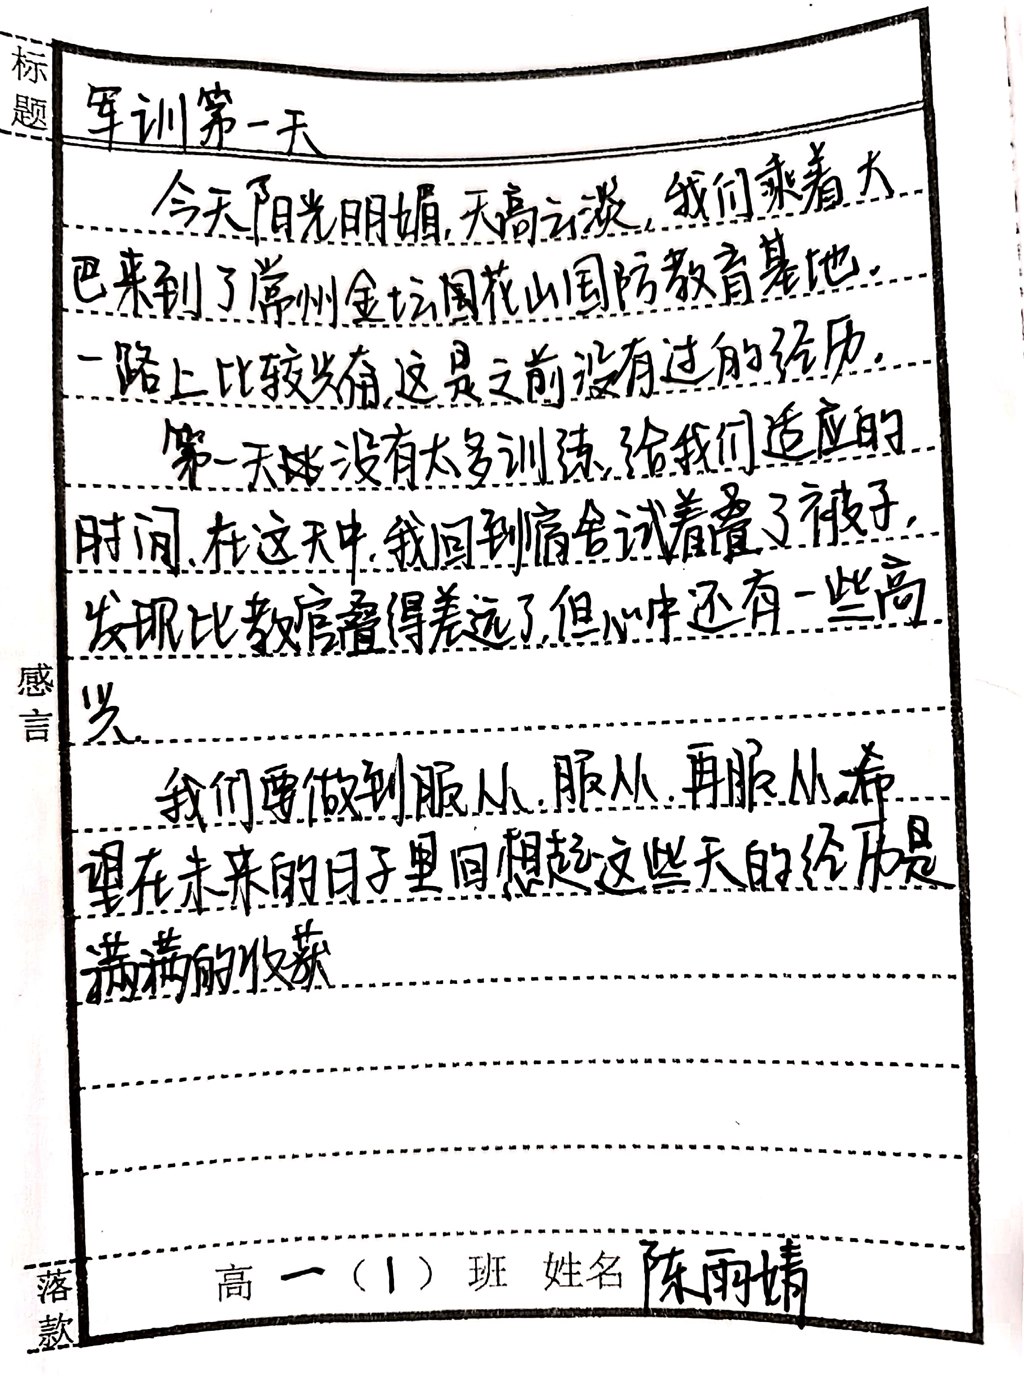 标题
军训第一天
今天阳光明媚,天高云淡,我们乘着大
巴来到了常州金坛园花山国防教育基地.
一路上比较兴奋,这是之前没有过的经历.
第一天没有太多训练,给我们适应的
时间、在这天中,我回到宿舍试着叠了被子,
发现比教官叠得差远了,但心中还有一些高
兴.
我们要做到服从、服从、再服从.希
望在未来的日子里回想起这些天的经历是
满满的收获
感言
落款
高一(1)班 姓名 陈雨婧